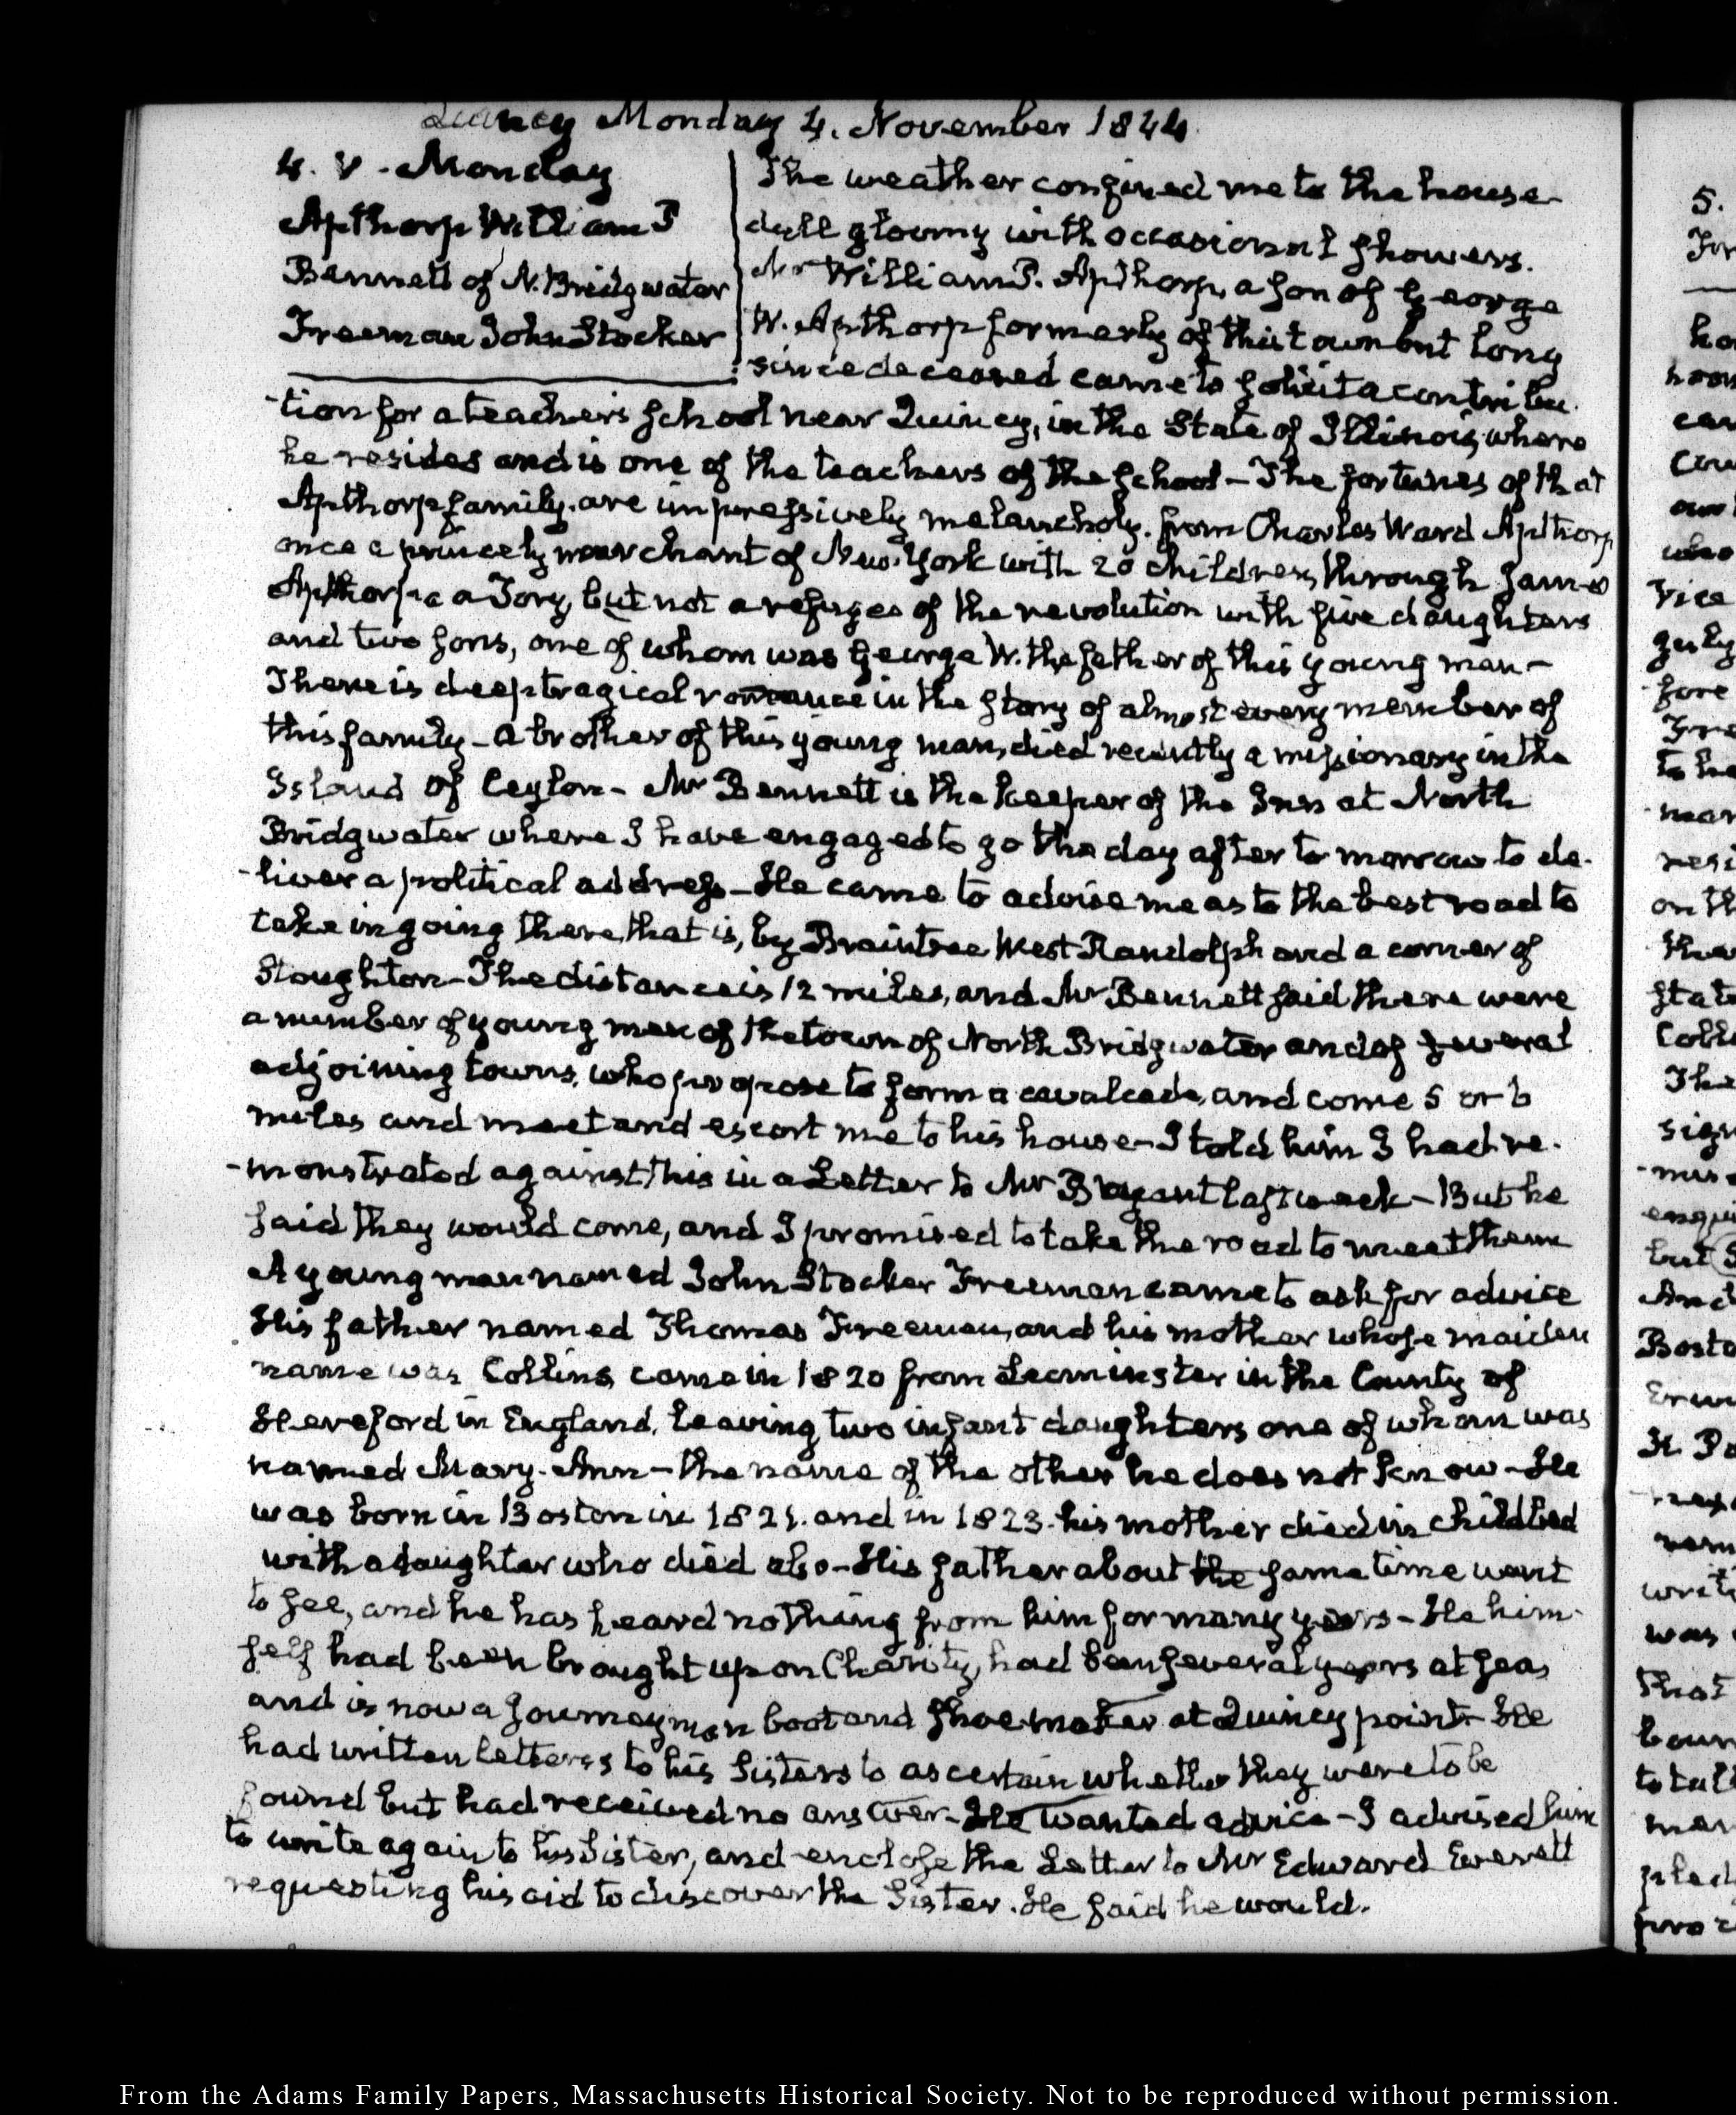 Quincy Monday 4. November 1844
4. V. Monday
Apthorp William P
Bennett of N. Bridgwater
Freeman John Stocker
The weather confined me to the house
dull gloomy with occasional showers.
Mr William P. Apthorp, a son of George
W. Apthorp formerly of this town but long
since deceased came to solicit a contribu
-tion for a teacher's school near Quincy, in the State of Illinois, where
he resides and is one of the teachers of the school – The fortunes of that
Apthorp family are impressively melancholy. from Charles Ward Apthorp
once a princely merchant of New-York with 20 children, through James
Apthorp a Tory, but not a refugee of the revolution with five daughters
and two sons, one of whom was George W. the father of this young man –
There is deep tragical romance in the story of almost every member of
this family – A brother of this young man, died recently a missionary in the
Island of Ceylon – Mr Bennett is the keeper of the Inn at North
Bridgwater where I have engaged to go the day after to morrow to de-
-liver a political address – He came to advise me as to the best road to
take in going there, that is, by Braintree West Randolph and a corner of
Stoughton – The distance is 12 miles, and Mr Bennett said there were
a number of young men of the town of North Bridgwater and of several
adjoining towns, who propose to form a cavalcade, and come 5 or 6
miles and meet and escort me to his house – I told him I had re-
-monstrated against this in a Letter to Mr Bryant last week – But he
said they would come, and I promised to take the road to meet them
A young man named John Stocker Freeman came to ask for advice
His father named Thomas Freeman, and his mother whose maiden
name was Collins came in 1820 from Leominster in the County of
Hereford in England, leaving two infant daughters one of whom was
named Mary-Ann – the name of the other he does not know – He
was born in Boston in 1821. and in 1823. his mother died in childbed
with a daughter who died also – His father about the same time went
to sea, and he has heard nothing from him for many years – He him-
self had been brought up on Charity, had been several years at sea,
and is now a journeyman boot and shoemaker at Quincy point – He
had written letters to his Sisters to ascertain whether they were to be
found but had received no answer – He wanted advice – I advised him
to write again to his Sister, and enclose the Letter to Mr Edward Everett
requesting his aid to discover the Sister. He said he would.
From the Adams Family Papers, Massachusetts Historical Society. Not to be reproduced without permission.